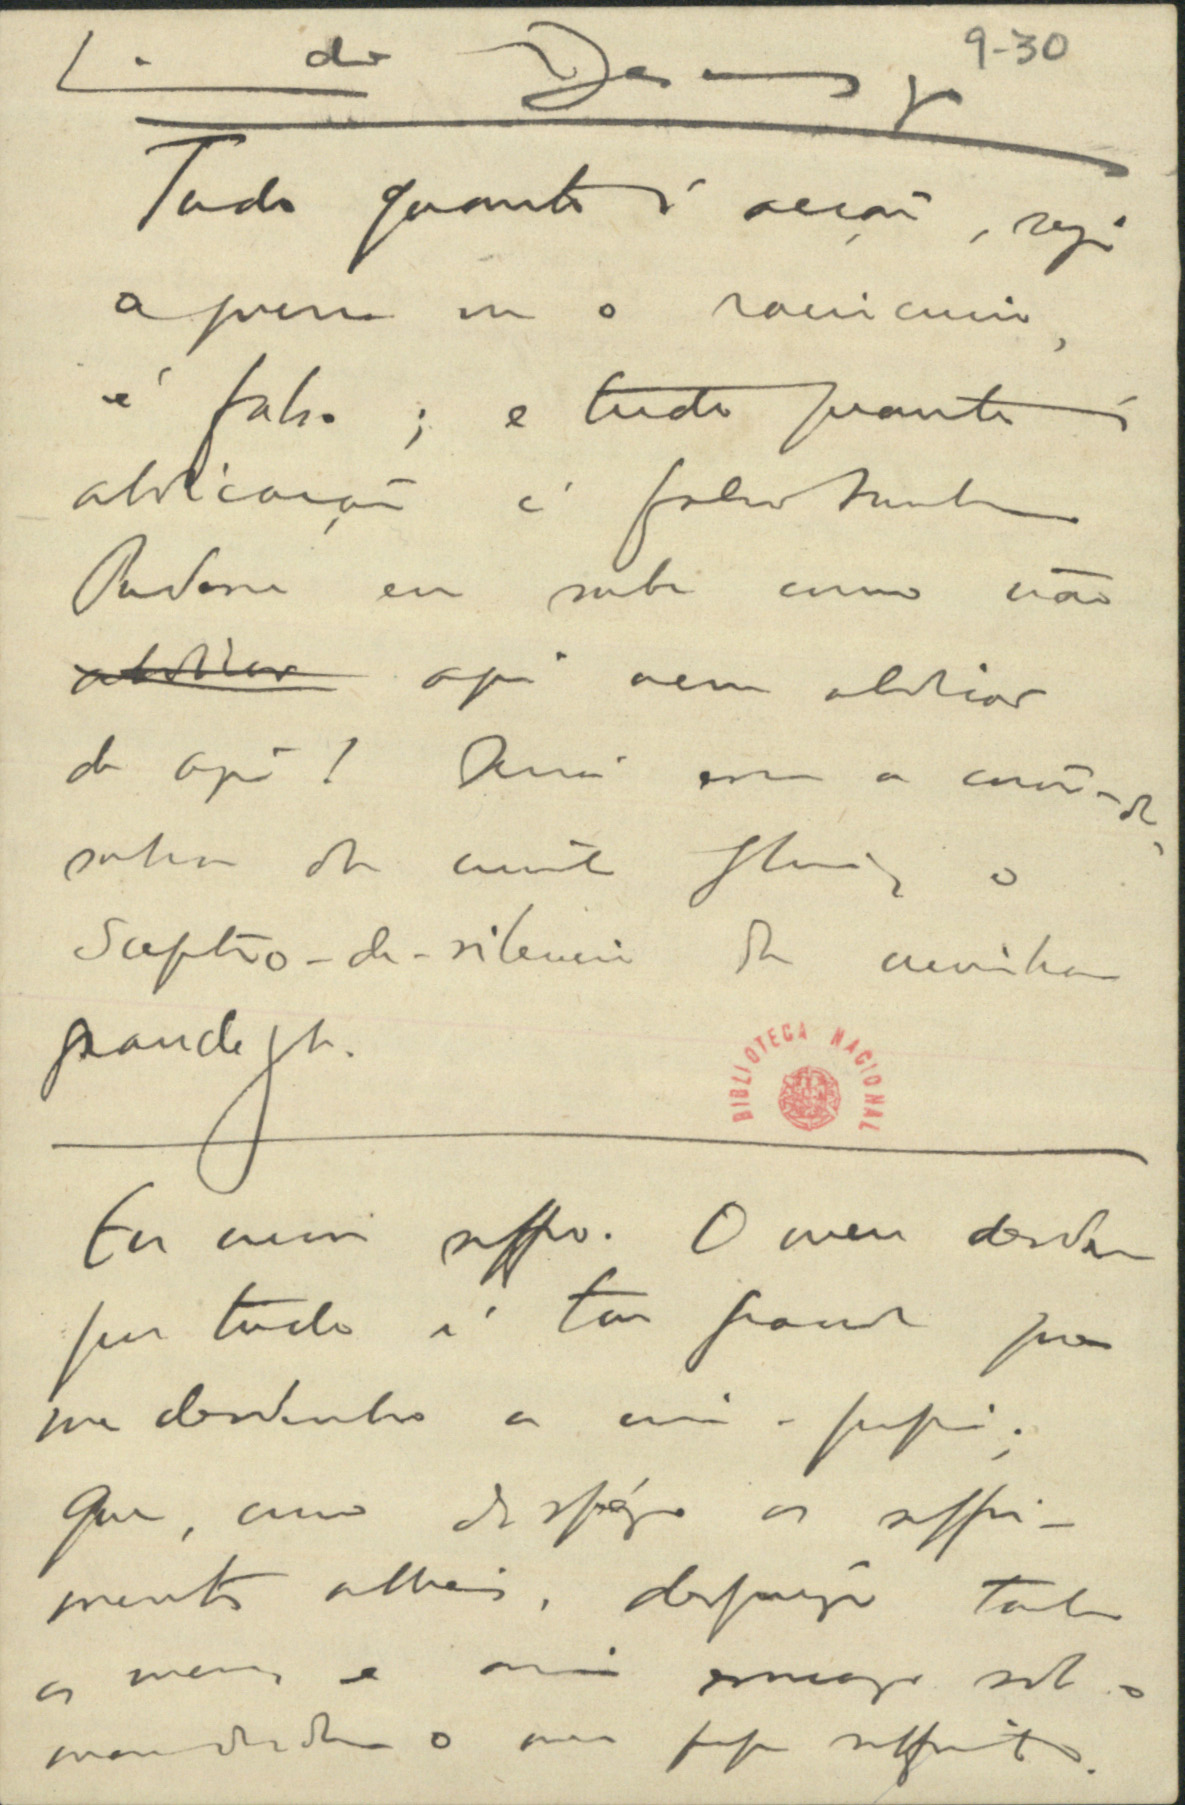 L. do Desassossego 9-30
Tudo quanto é acção, seja
a guerra ou o raciocinio,
é falso; e tudo quanto é
abdicação é falso tambem
Pudesse eu saber como não
abdicar agir nem abdicar
de agir! Seria essa a corôa-de-
sonho da minha gloria, o
sceptro-de-silencio da minha
grandeza.
BIBLIOTECA NACIONAL
Eu nem soffro. O meu desdem
por tudo é tão grande que
me desdenho a mim-proprio;
que, como desprezo os soffri-
mentos alheios, desprezo tambem
os meus, e assim esmago sob o
meu desdem o meu proprio soffrimento.